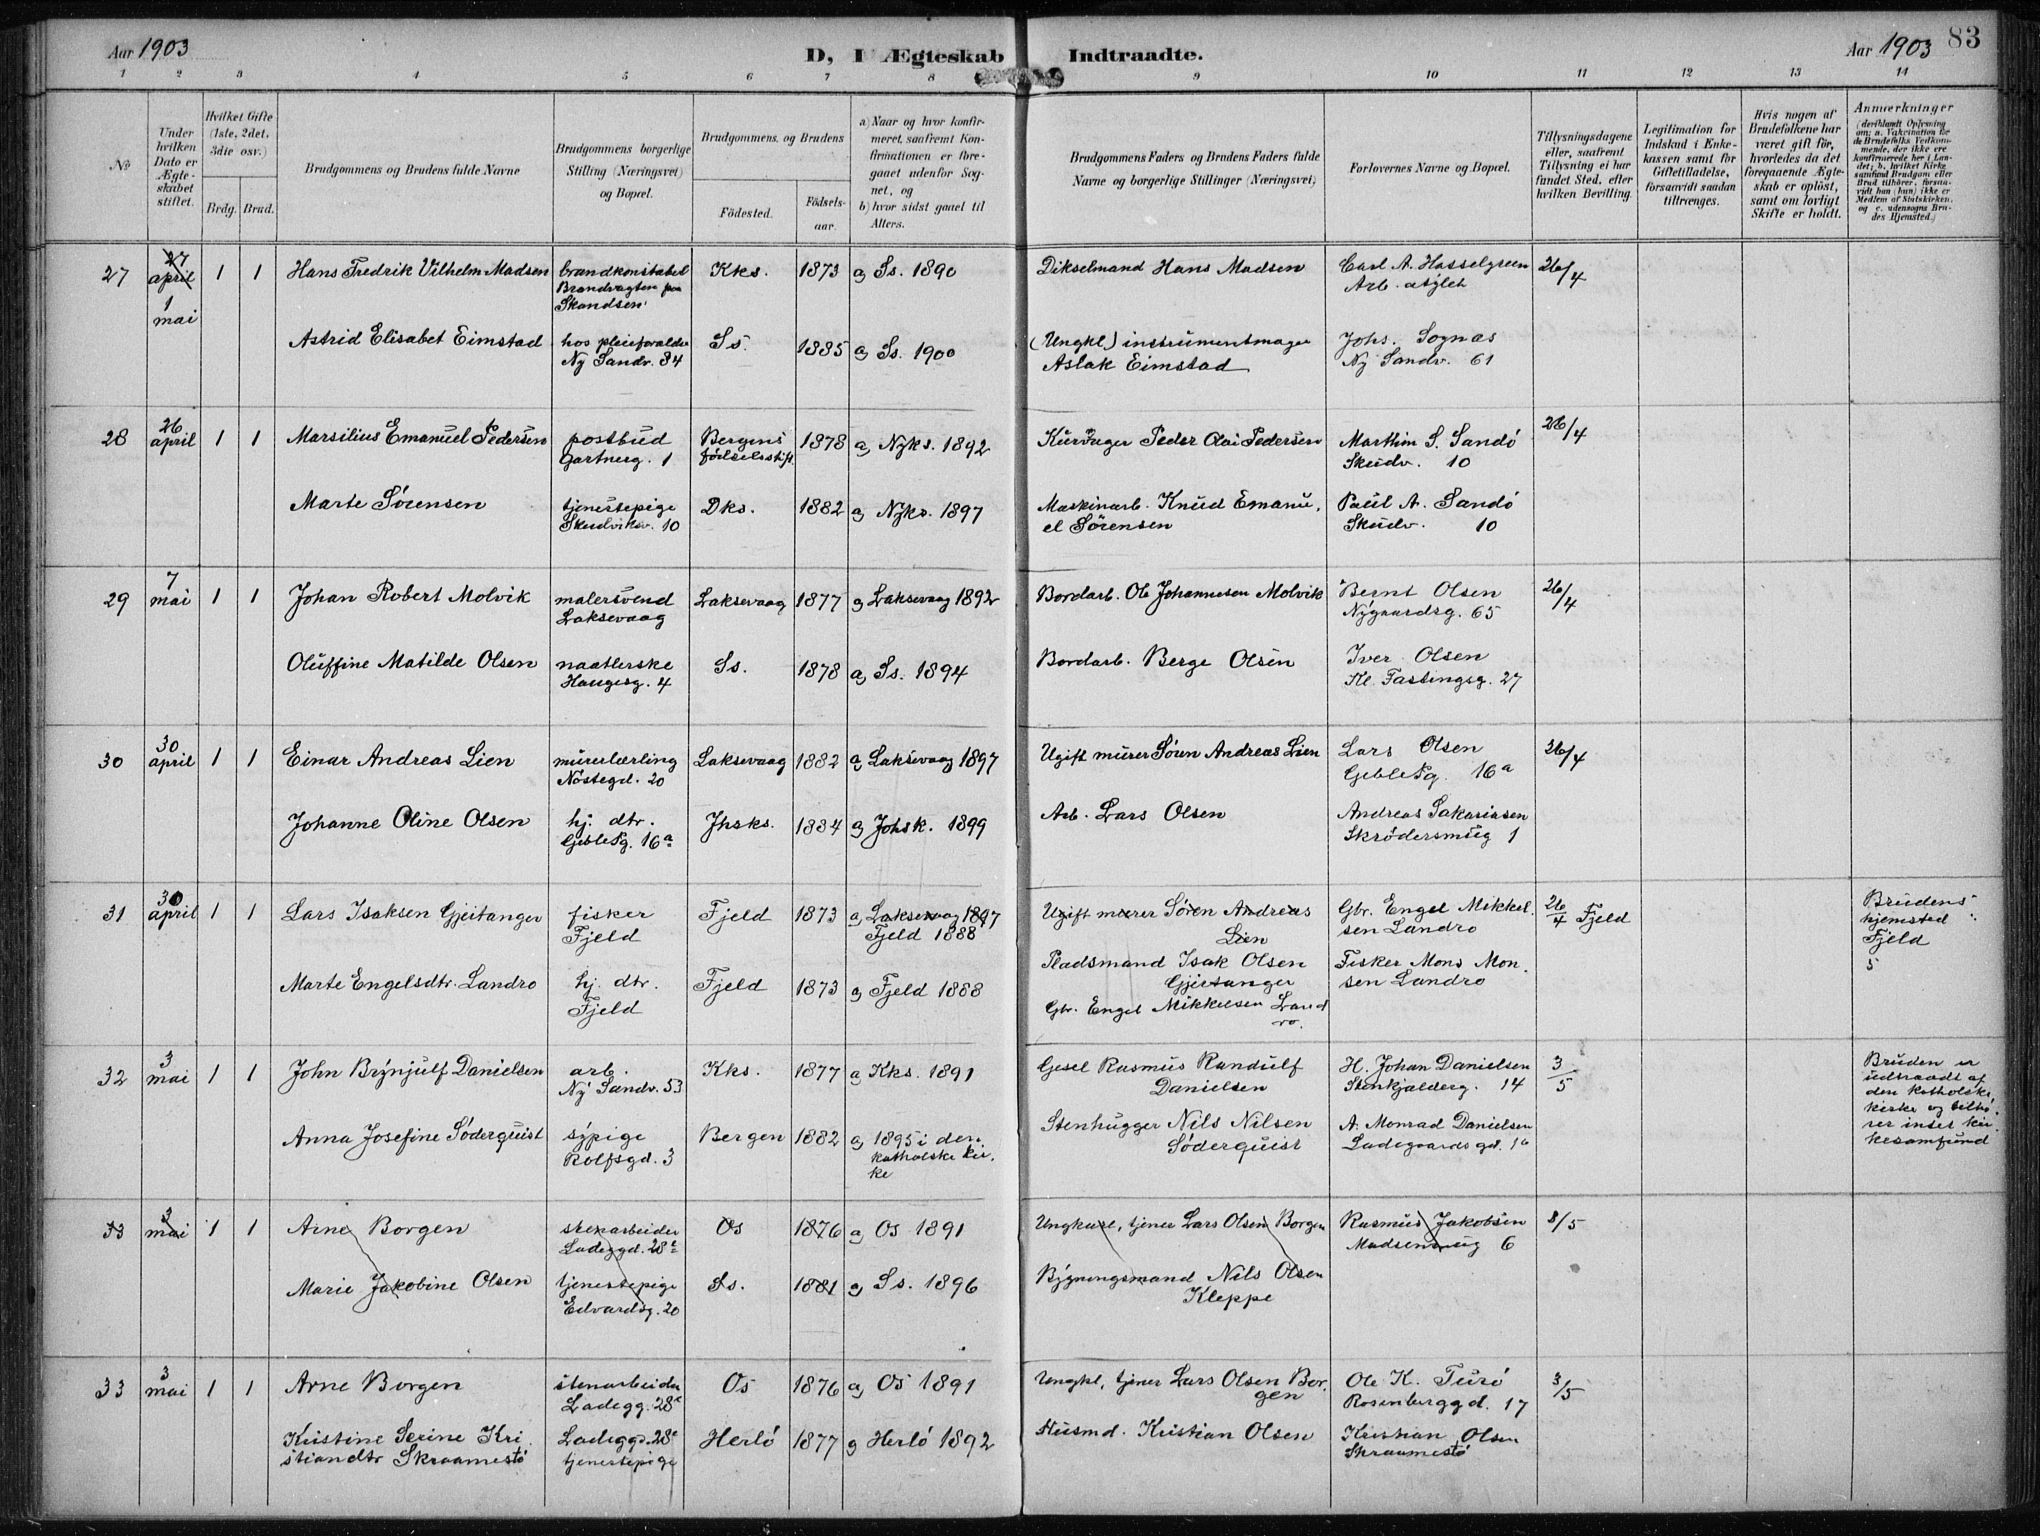 Aar 1903
D, I Ægteskab Indtraadte.
Aar 1903
83
1 2 3 4 5 6 7 8 9 10 11 12 13 14
No
Under hvilken Dato er Ægteskabet stiftet.
Hvilket Gifte (1ste, 2det, 3die osv.)
Brdg. Brud.
Brudgommens og Brudens fulde Navne
Brudgommens borgerlige Stilling (Næringsvei) og Bopæl.
Brudgommens, og Brudens
Födested.
Födselsaar.
a) Naar og hvor konfirmeret, saafremt Konfirmationen er foregaaet udenfor Sognet, og
b) hvor sidst gaaet til Alters.
Brudgommens Faders og Brudens Faders fulde Navne og borgerlige Stillinger (Næringsvei)
Forlovernes Navne og Bopæl.
Tillysningsdagene eller, saafremt Tillysning ei har fundet Sted, efter hvilken Bevilling.
Legitimation for Indskud i Enkekassen samt for Giftetilladelse, forsaavidt saadan tiltrænges.
Hvis nogen af Brudefolkene har været gift før, hvorledes da det foregaaende Ægteskab er oplöst, samt om lovligt Skifte er holdt.
Anmærkninger
(deriblandt Oplysning om: a. Vakcination for de Brudefolks Vedkommende, der ikke ere konfirmerede her i Landet; b. hvilket Kirkesamfund Brudgom eller Brud tilhörer, forsaavidt han (hun) ikke er Medlem af Statskirken, og c. udensogns Brudes Hjemsted.)
27 27 april 1 mai 1 1 Hans Fredrik Vilhelm Madsen brandkonstabel Brandvagten paa Skandsen Kks. 1873 a) Ss. 1890 Dikselmand Hans Madsen Carl A. Hasselgreen Arb. asylet 26/4
Astrid Elisabet Eimstad hos pleieforældre Ny Sandv. 84 Ss. 1885 a) Ss. 1900 (Ungkl) instrumentmager Aslak Eimstad Johs. Sognæs Ny Sandv. 61
28 26 april 1 1 Marsilius Emanuel Pedersen postbud Gartnerg. 1 Bergens fødselsstift. 1878 a) Nyks. 1892 Peder Pedersen Marthin S. Sandó Skudv. 10 26/4
Marte Sørensen tjenestepige Skudviksv. 10 Dks. 1882 a) Nyks. 1897 Maskinarb. Knud Emanuel Sørensen Paul A. Sandó Skudv. 10
29 7 mai 1 1 Johan Robert Molvik malersvend Laksevaag Laksevaag 1877 a) Laksevaag 1892 Bordarb. Ole Johannesen Molvik Bernt Olsen Nygaardsg. 65 26/4
Oluffine Matilde Olsen naatlerske Haugesg. 4 Ss. 1878 a) Ss. 1894 Bordarb. Berge Olsen Iver Olsen Kl. Fastingsg. 27
30 30 april 1 1 Einar Andreas Lien murerlærling Nøstegd. 20 Laksevaag 1882 a) Laksevaag 1897 Ugift murer Søren Andreas Lien Lars Olsen Gjeblesg. 16a 26/4
Johanne Oline Olsen hj. dtr. Gjeblesg. 16a Jhsks. 1884 a) Johsk. 1899 Arb. Lars Olsen Andreas Sakariasen Skrødersmug 1
31 30 april 1 1 Lars Isaksen Gjeitanger fisker Fjeld Fjeld 1873 a) Laksevaag 1897 Fjeld 1888 Ugift murer Søren Andreas Lien Pladsmand Isak Olsen Gjeitanger Gbr. Engel Mikkelsen Landro 26/4 Fjeld Brudens hjemsted: Fjeld 5
Marte Engelsdtr. Landro hj. dtr. Fjeld Fjeld 1873 a) Fjeld 1888 Gbr. Engel Mikkelsen Landro. Fisker Mons Monsen Landro
32 3 mai 1 1 John Brynjulf Danielsen arb. Ny Sandv. 53 Kks. 1877 a) Kks. 1891 Gesel Rasmus Randulf Danielsen H. Johan Danielsen Stenkjælderg. 14 3/5 Bruden er udtraadt af den katholske kirke og tilhører intet kirkesamfund
Anna Josefine Søderquist sypige Rolfsgd. 3 Bergen 1882 a) 1895 i den katholske kirke Stenhugger Nils Nilsen Søderquist A. Monrad Danielsen Ladegaardsgd.
33 3 mai 1 1 Arne Borgen stenarbeider Ladeggd. 28a Os 1876 a) Os 1891 Ungkarl, tjener Lars Olsen Borgen Rasmus Jakobsen Madsensmug 6 3/5
Marie Jakobine Olsen tjenestepige Edvardsg. 20 Ss. 1881 a) Ss. 1896 Bygningsmand Nils Olsen Kleppe
33 3 mai 1 1 Arne Borgen stenarbeider Ladegg. 28a Os 1876 a) Os 1891 Ungkl, tjener Lars Olsen Borgen Ole K. Turó Rosenberggd. 17 3/5
Kristine Serine Kristiandtr Skraamestø Ladeggd. 28a tjenestepige Herló 1877 a) Herló 1892 Husmd. Kristian Olsen Kristian Olsen Skraamestó